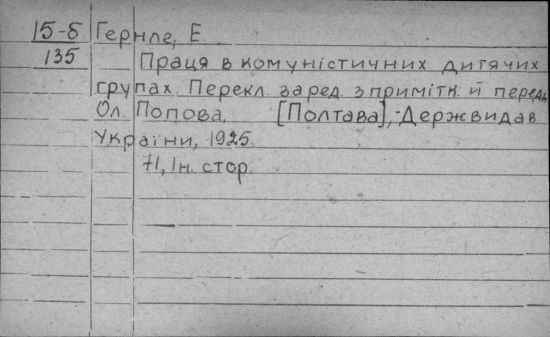 15-б Гернле, Е.
135 Праця в комуністичних дитячих
групах. Перекл. за ред. з примітк. й перед.
Ол. Попова. [Полтава], Держвидав
України, 1925.
71, Ін. стор.